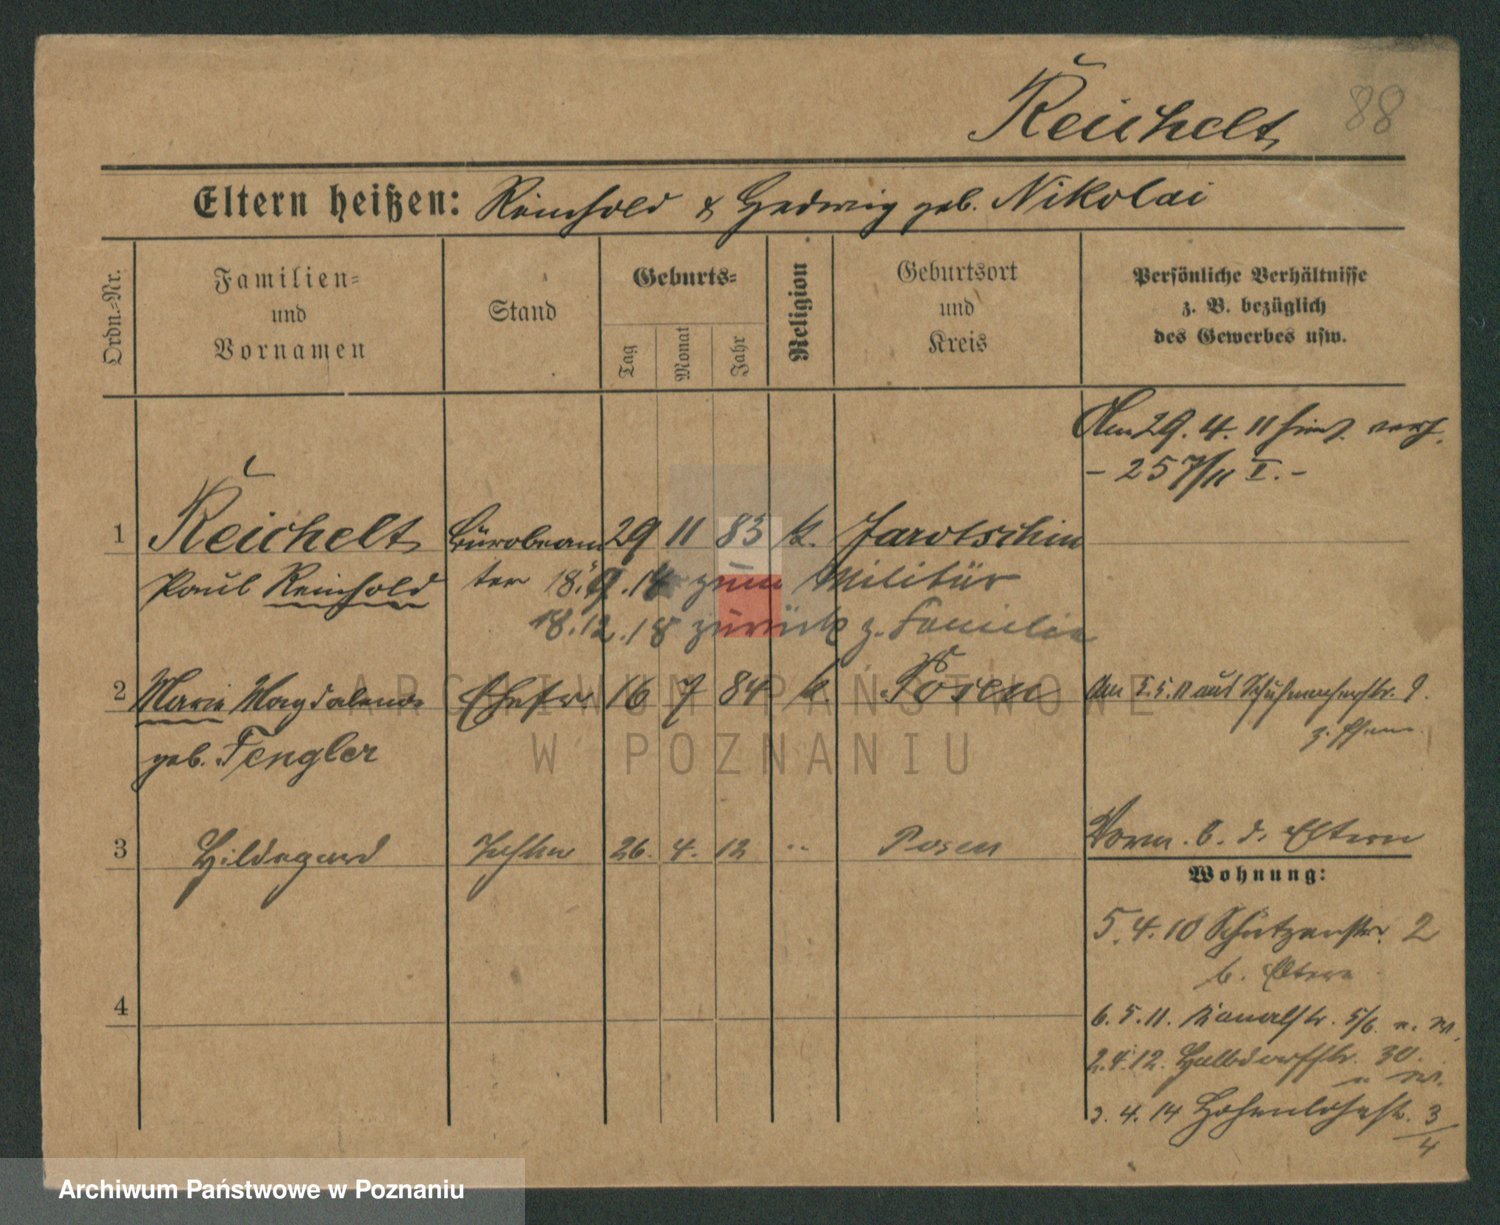 Reichelt 88
Eltern heißen: Reinhold & Hedwig geb. Nikolai
Ordn.-Nr.
Familien-
und
Vornamen
Stand
Geburts-
Tag
Monat
Jahr
Religion
Geburtsort
und
Kreis
Persönliche Verhältnisse
z. B. bezüglich
des Gewerbes usw.
Am 29. 4. 11 verh.
- 257/11 I. -
1 Reichelt Bürobeam 29 11 83 k. Jarotschin
Paul Reinhold ter 18. 9. 14 zum Militär
18. 12. 18 zurück z. Familie
2 Marie Magdalena Ehefr. 16 7 84 k. Posen Am 5. 11 aus 9.
geb. Fengler
3 Hildegard Tochter 26. 4. 12 " Posen Vorm. b. d. Eltern
Wohnung:
5. 4. 10 Schützenstr. 2
b. Eltern
4
6. 5. 11. Kanalstr. 5/6.
2. 4. 12. Halbdorfstr. 30.
3. 4. 14 Hohenlohestr. 3/4
ARCHIWUM PAŃSTWOWE
W POZNANIU
Archiwum Państwowe w Poznaniu